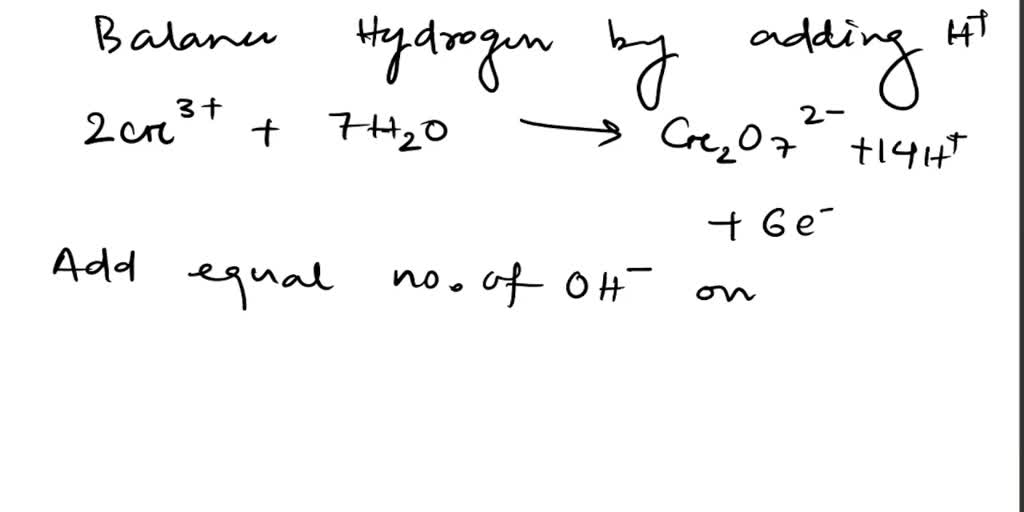 Balance Hydrogen by adding H⁺
2Cr³⁺ + 7H₂O ⟶ Cr₂O₇²⁻ + 14H⁺
+ 6e⁻
Add equal no. of OH⁻ on